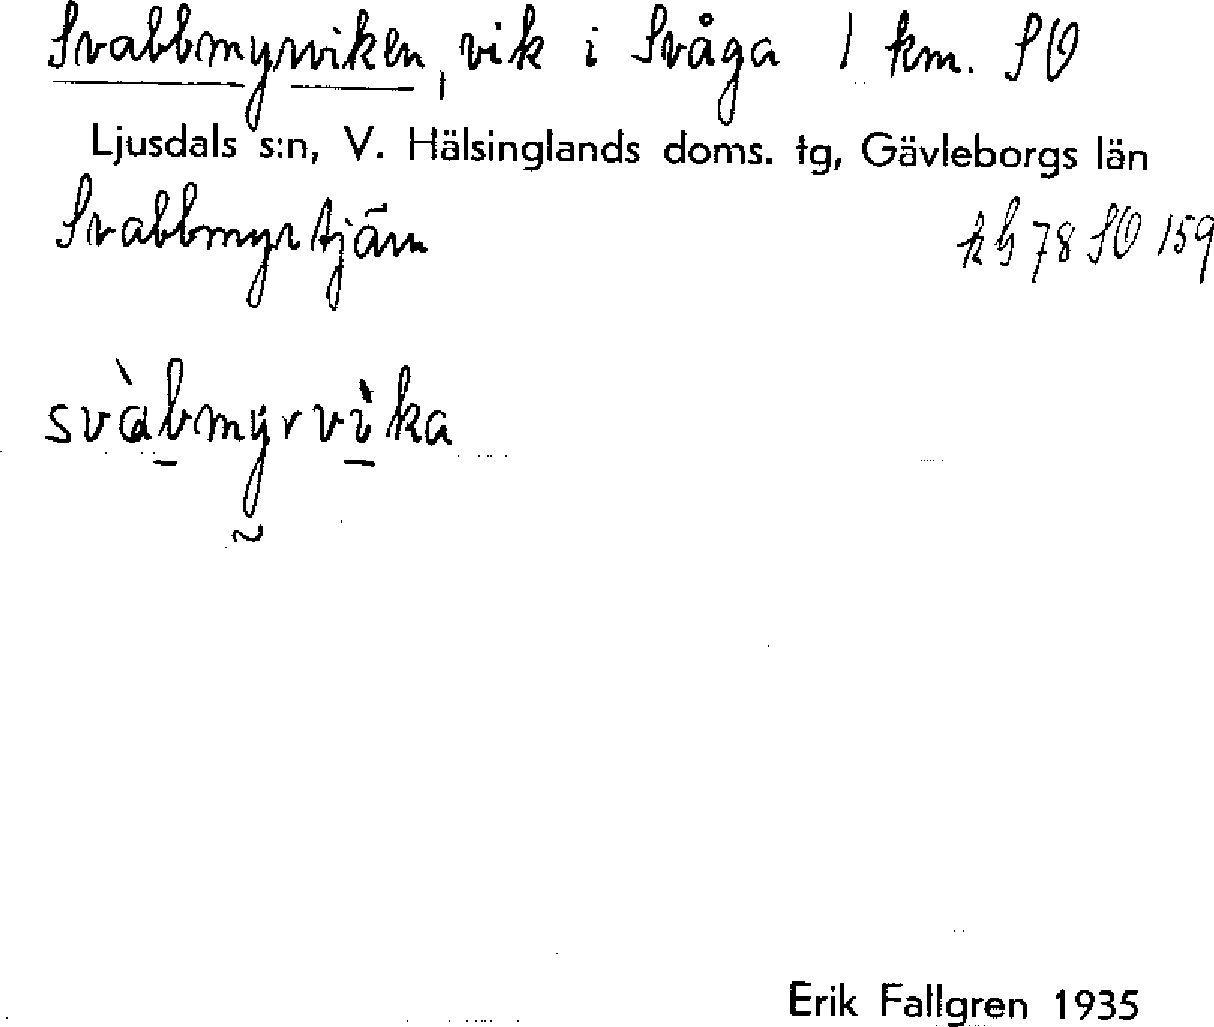 Svabbmyrviken, vik i Svåga 1 km. SO
Ljusdals s:n, V. Hälsinglands doms. tg, Gävleborgs län
Svabbmyrtjärn
kb 78 SO 159
svàbmyrvìka
Erik Fallgren 1935